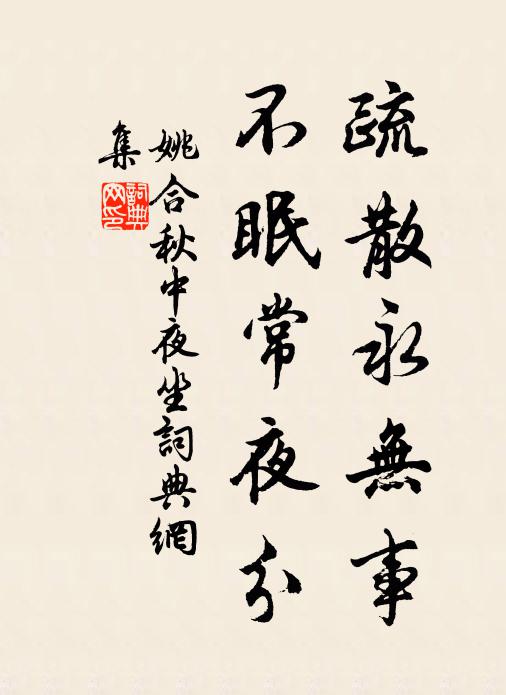 疏散永無事
不眠常夜分
姚合秋中夜坐詞典網
集
詞典網印